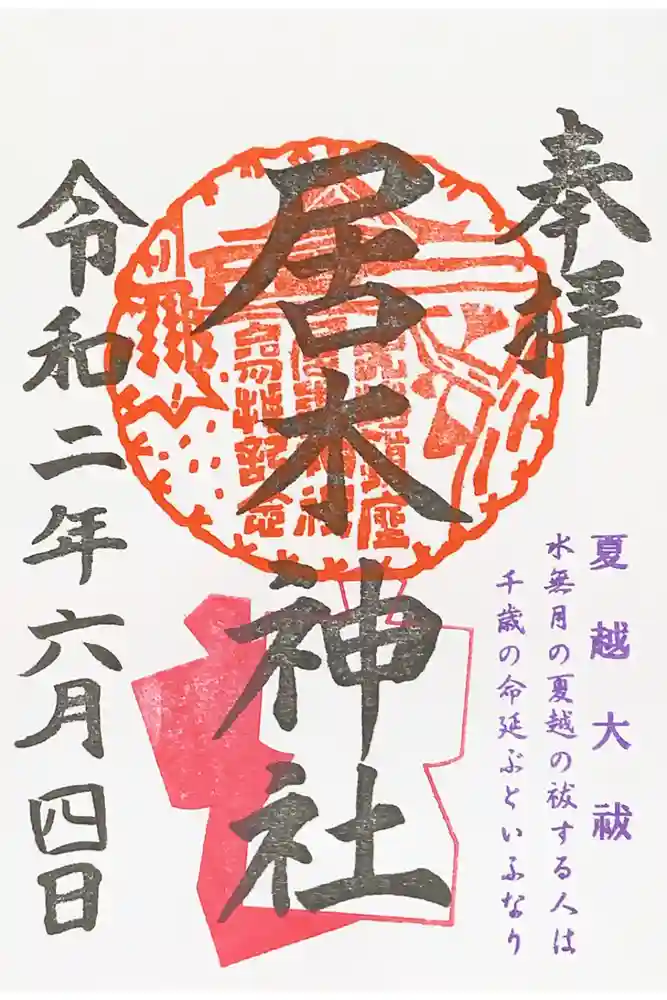 奉拝
夏越大祓
水無月の夏越の祓する人は
千歳の命延ぶといふなり
居木神社
令和二年六月四日